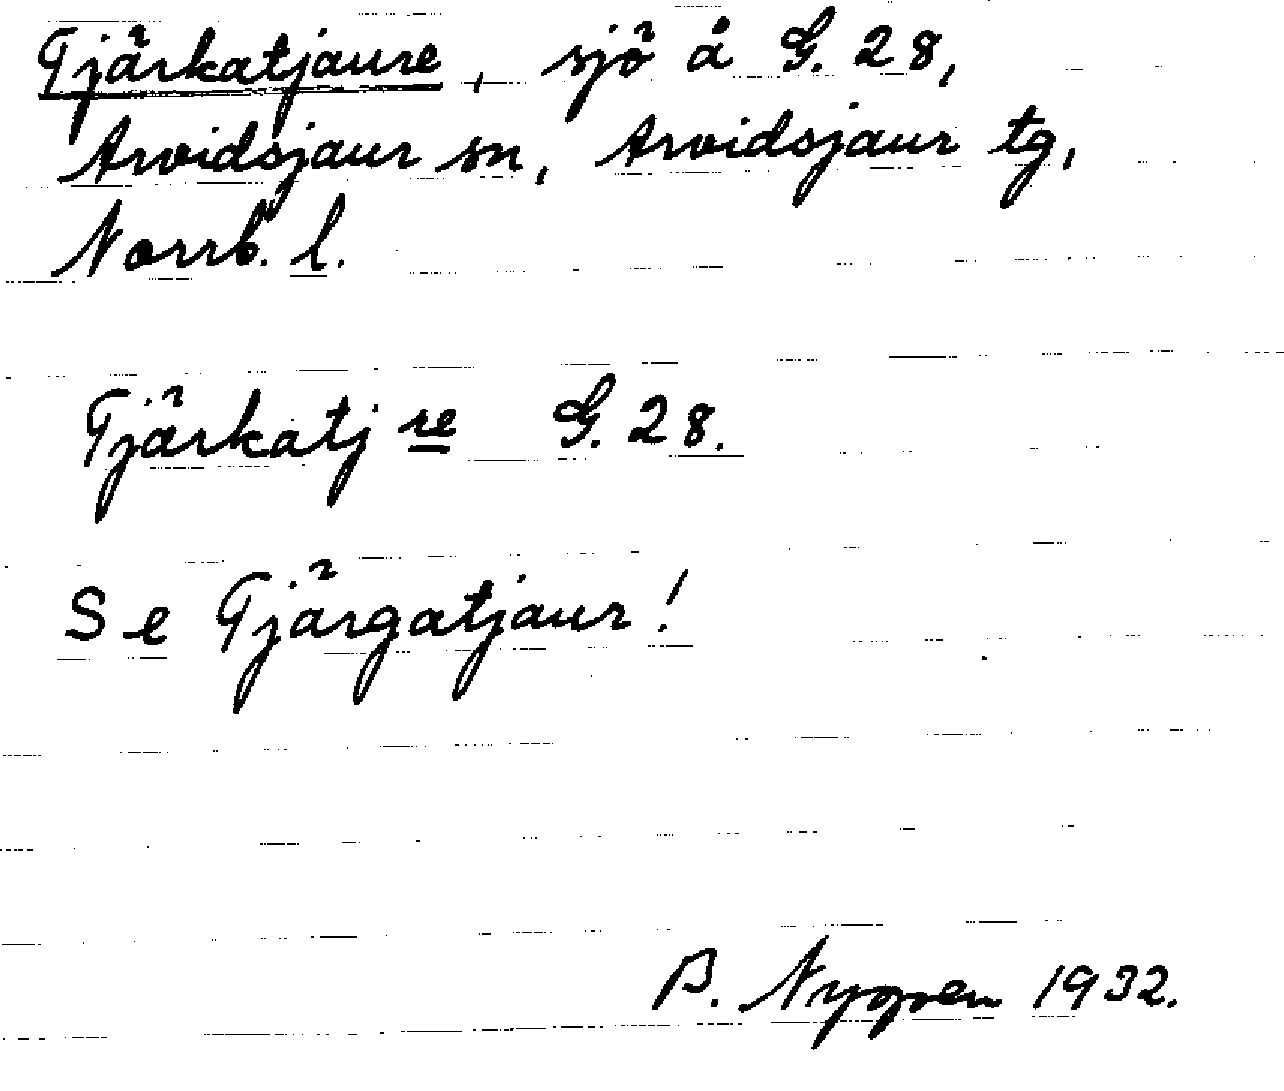 Tjärkatjaure, sjö å G. 28,
Arvidsjaur sn, Arvidsjaur tg,
Norrb. l.
Tjärkatj re G. 28.
Se Tjärgatjaur!
B. 1932.